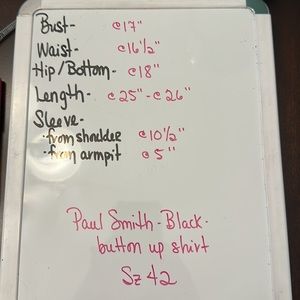 Bust- c17"
Waist- c16½"
Hip/Bottom- c18"
Length- c25"-c26"
Sleeve-
·from shoulder c10½"
·from armpit c5"
Paul Smith-Black-
button up shirt
Sz 42